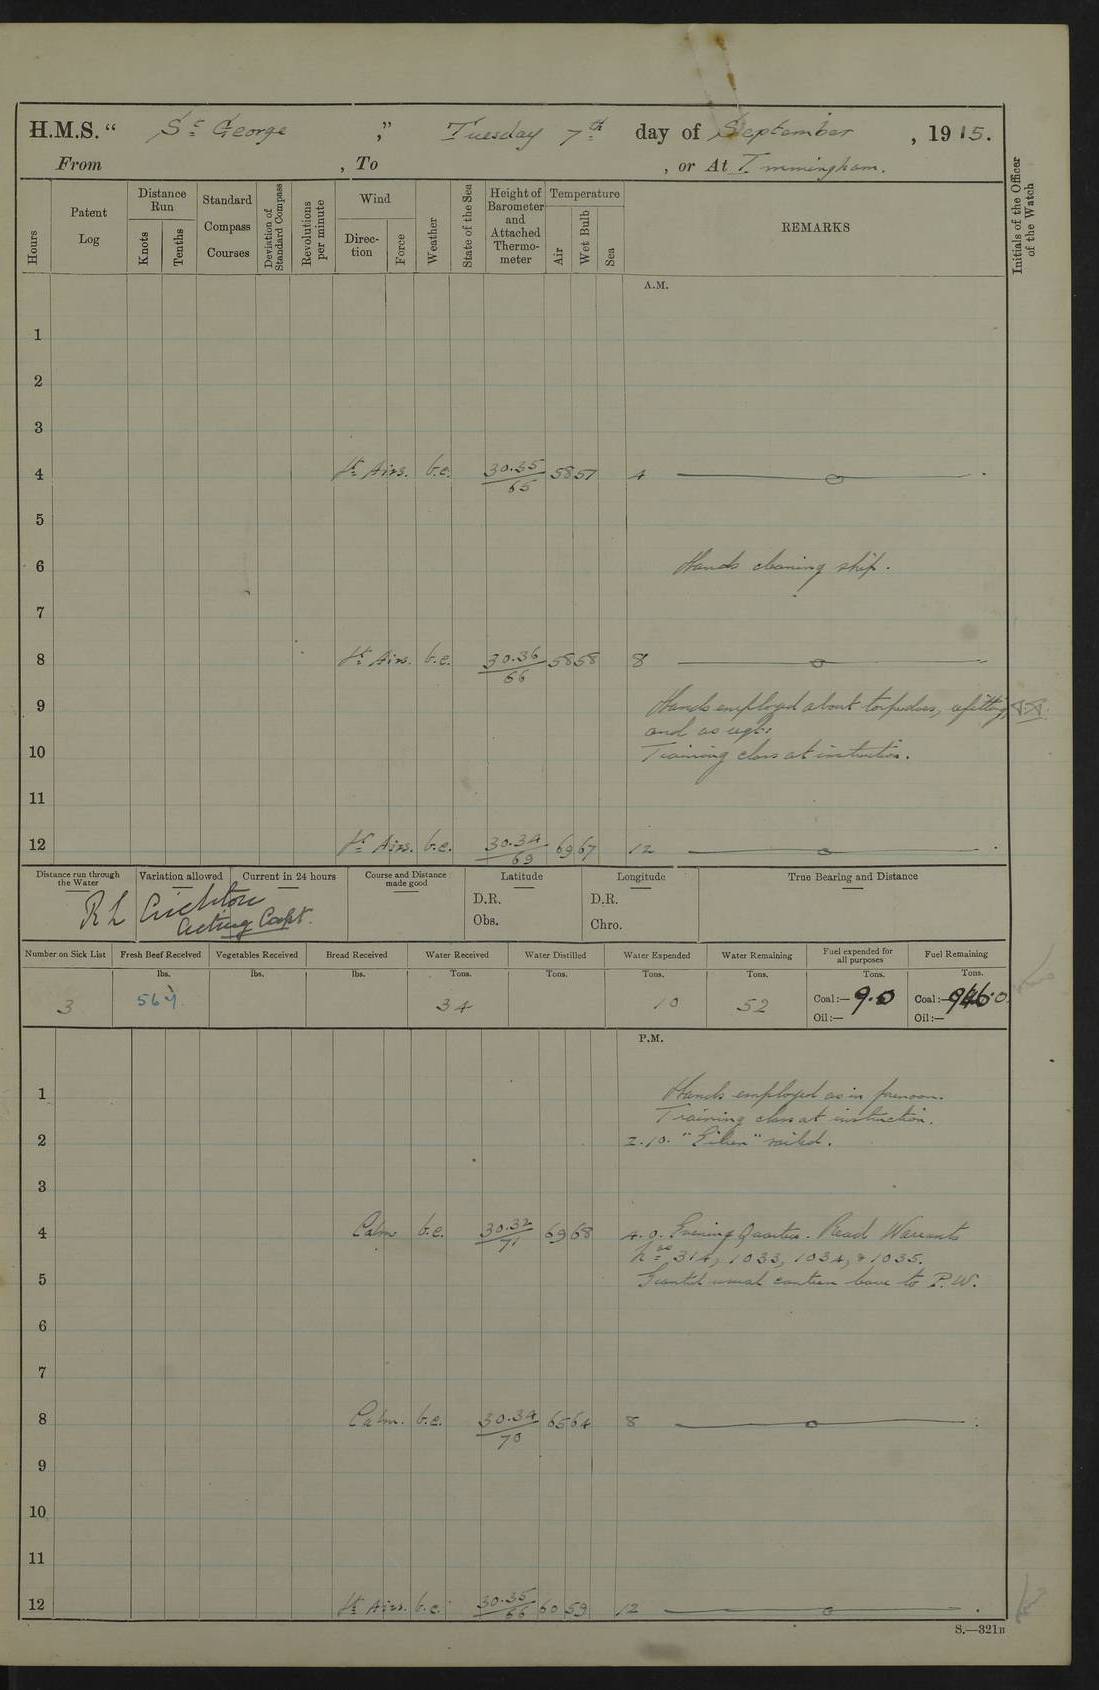 H.M.S. “ St George ,” Tuesday 7th day of September , 1915.
From , To , or At Immingham.
Hours
Patent Log
Distance Run
Knots
Tenths
Standard Compass Courses
Deviation of Standard Compass
Revolutions per minute
Wind
Direction
Force
Weather
State of the Sea
Height of Barometer and Attached Thermometer
Temperature
Air
Wet Bulb
Sea
REMARKS
Initials of the Officer of the Watch
A.M.
1
2
3
4 Lt Airs. b.c. 30.35/65 58 57 4
5
6 Hands cleaning ship.
7
8 Lt Airs. b.c. 30.36/66 58 58 8
9 Hands employed about torpedoes, refitting,
and as reqd:
10 Training class at instruction.
11
12 Lt Airs. b.c. 30.34/69 69 67 12
Distance run through the Water
Variation allowed
Current in 24 hours
Course and Distance made good
Latitude
D.R.
Obs.
Longitude
D.R.
Chro.
True Bearing and Distance
R L Crichton
Acting Capt.
Number on Sick List
Fresh Beef Received
Vegetables Received
Bread Received
Water Received
Water Distilled
Water Expended
Water Remaining
Fuel expended for all purposes
Fuel Remaining
lbs. lbs. lbs. Tons. Tons. Tons. Tons. Tons. Tons.
3 567 34 10 52 Coal:— 9.0 Coal:—
Oil:— Oil:—
P.M.
1 Hands employed as in forenoon.
Training class at instruction.
2 2.10. "Eileen" sailed.
3
4 Calm b.c. 30.32/71 69 68 4.0. Evening Quarters. Read Warrants
Nos 314, 1033, 1034, & 1035.
5 Granted usual canteen leave to P.W.
6
7
8 Calm. b.c. 30.34/70 65 64 8
9
10
11
12 Lt Airs. b.c. 30.35/66 60 59 12
S.—321B